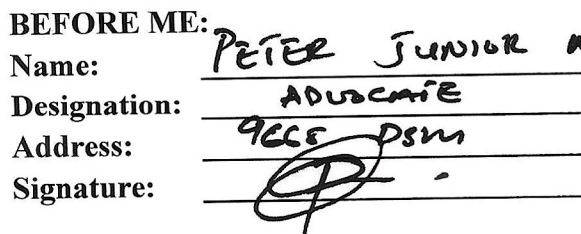 BEFORE ME:
Name: PETER JUNIOR
Designation: ADVOCATE
Address: DSM
Signature: